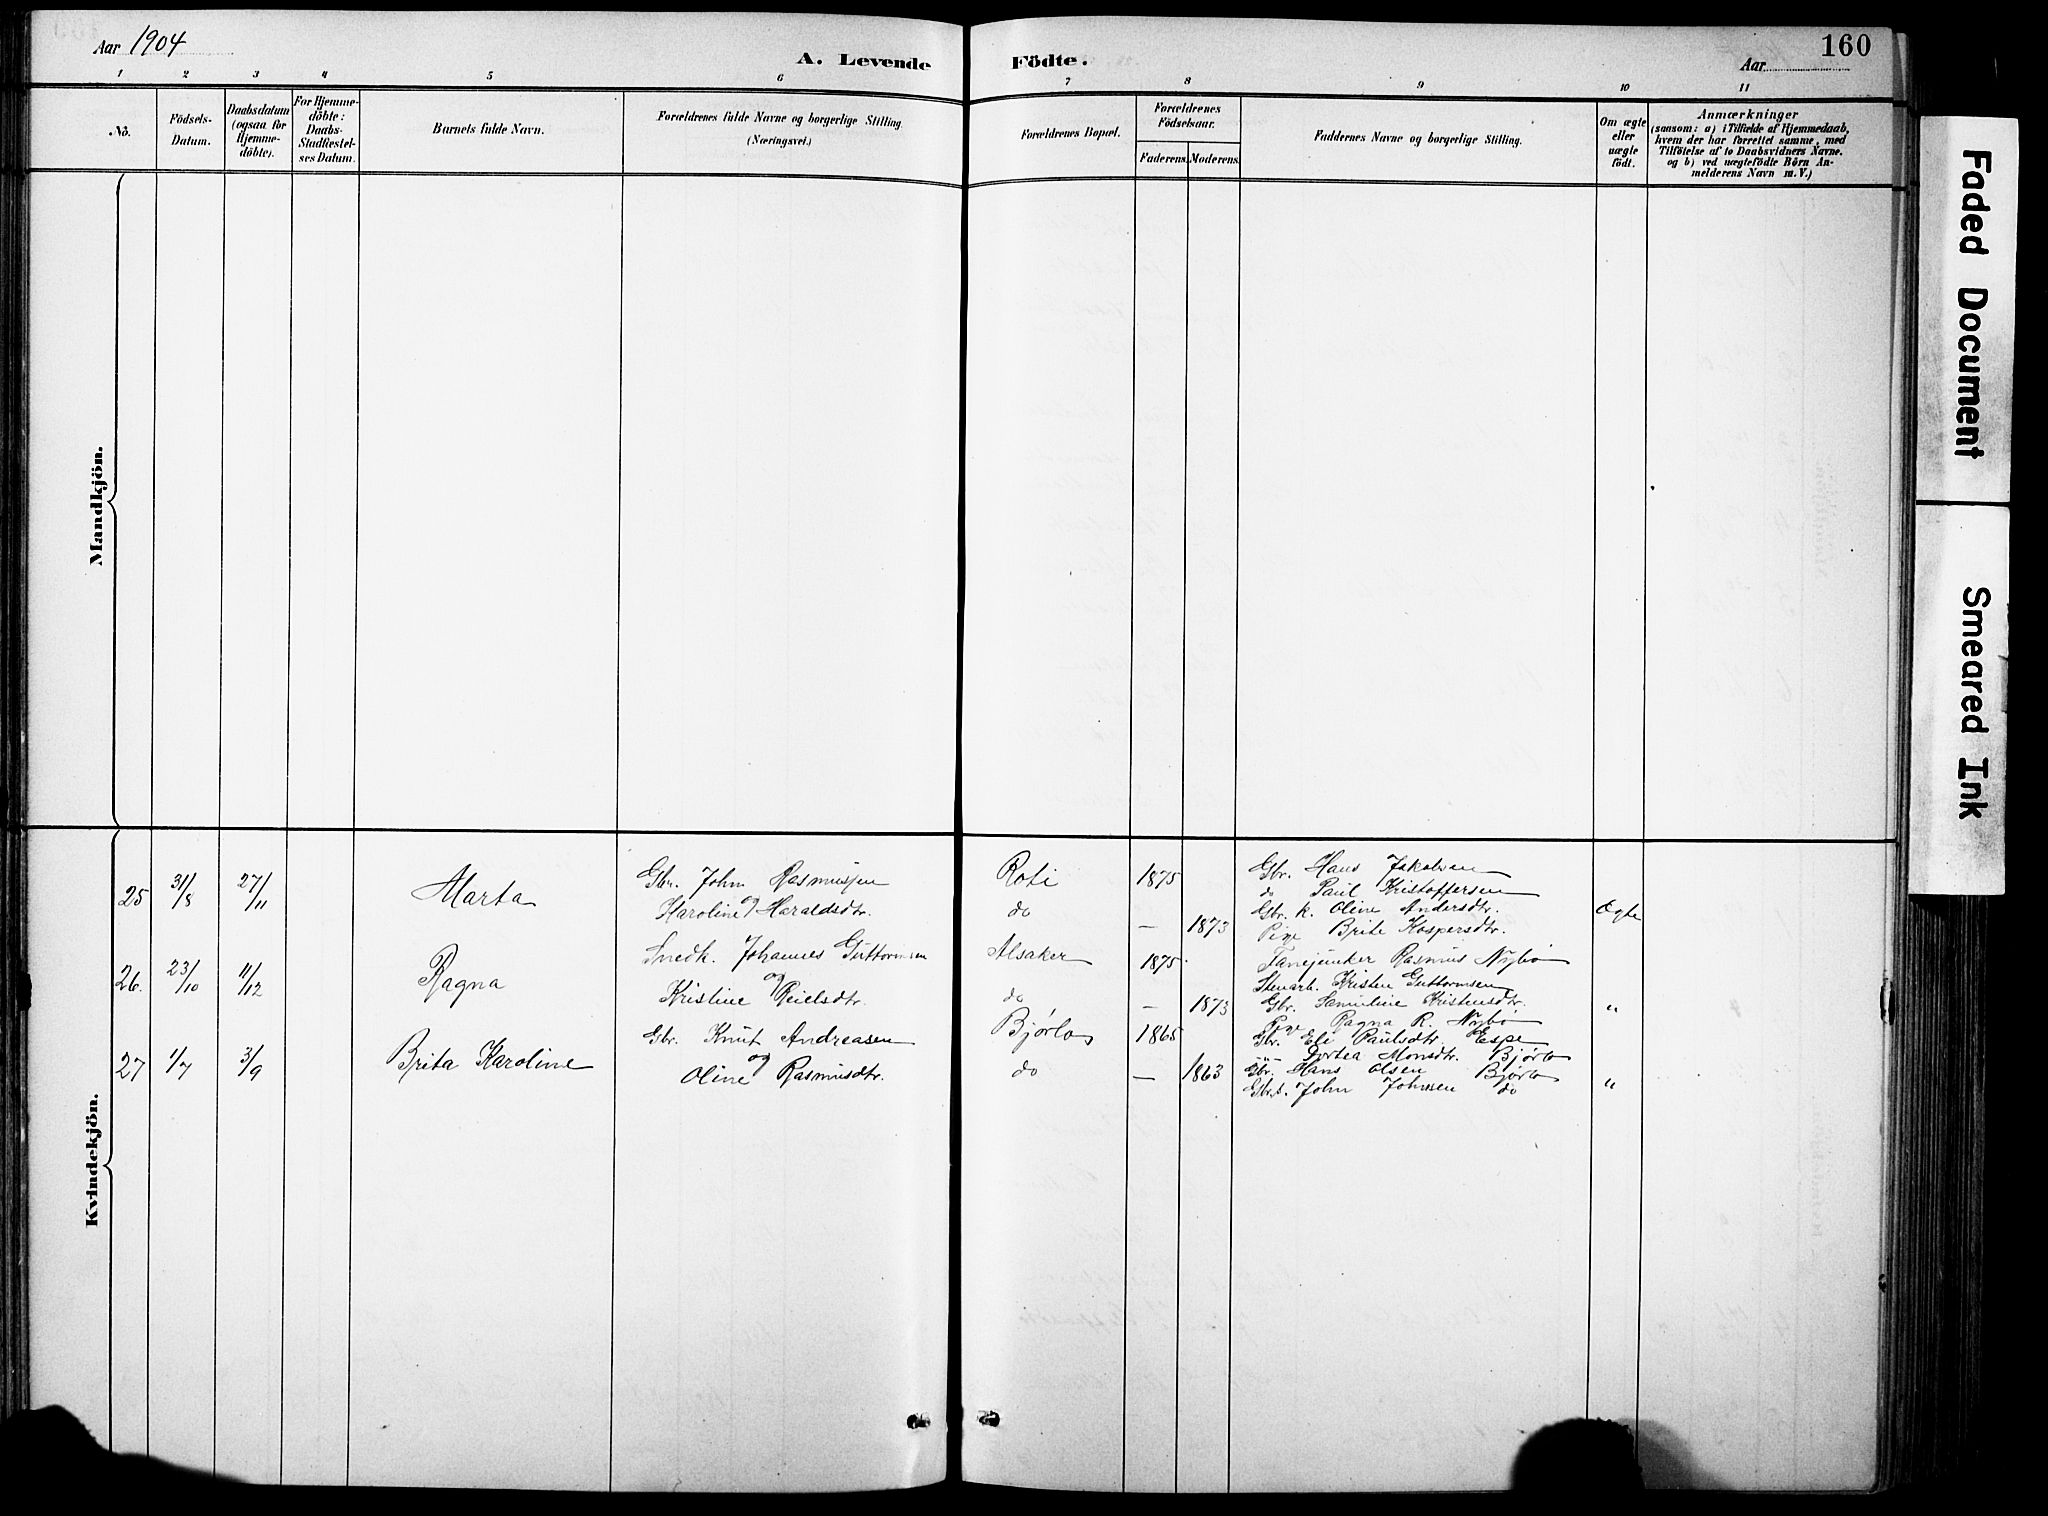 Aar 1904
A. Levende Födte.
Aar
160
1 2 3 4 5 6 7 8 9 10 11
No.
Födsels-Datum.
Daabsdatum (ogsaa for Hjemme-döbte).
For Hjemme-döbte: Daabs-Stadfestel-ses Datum.
Barnets fulde Navn.
Forældrenes fulde Navne og borgerlige Stilling.
(Næringsvei.)
Forældrenes Bopæl.
Forældrenes Födselsaar.
Faderens. Moderens.
Faddernes Navne og borgerlige Stilling.
Om ægte eller uægte födt.
Anmærkninger
(saasom: a) i Tilfælde af Hjemmedaab,
hvem der har forrettet samme, med
Tilföielse af to Daabsvidners Navne.
og b) ved uægtefödte Börn An-
melderens Navn m.V.)
Mandkjön.
Kvindekjön.
25 31/8 27/11 Marta
Gbr. John Rasmussen
og
Karoline Haraldsdtr.
Roti 1875
do — 1873
Gbr. Hans Jakobsen
do Paul Kristoffersen
Gbr. k. Oline Andersdtr.
Pige Brite Kaspersdtr.
Ægte
26. 23/10 11/12 Ragna
Snedk. Johannes Guttormsen
og
Kristine Reielsdtr.
Alsaker 1875
do — 1873
Fanejunker Rasmus Nybø
Stenarb. Kristen Guttormsen
Gbr. Samuline Kristensdtr.
Pige Ragna R. Nybø
"
27 1/7 3/9 Brita Karoline
Gbr. Knut Andreasen
og
Oline Rasmusdtr.
Bjørlo 1865
do — 1863
Gbr. Eli Paulsdtr. Espe
-"- Dortea Monsdtr. Bjørlo
Gbr. Hans Olsen Bjørlo
Gbr.s. John Johnsen do
"
Faded Document
Smeared Ink